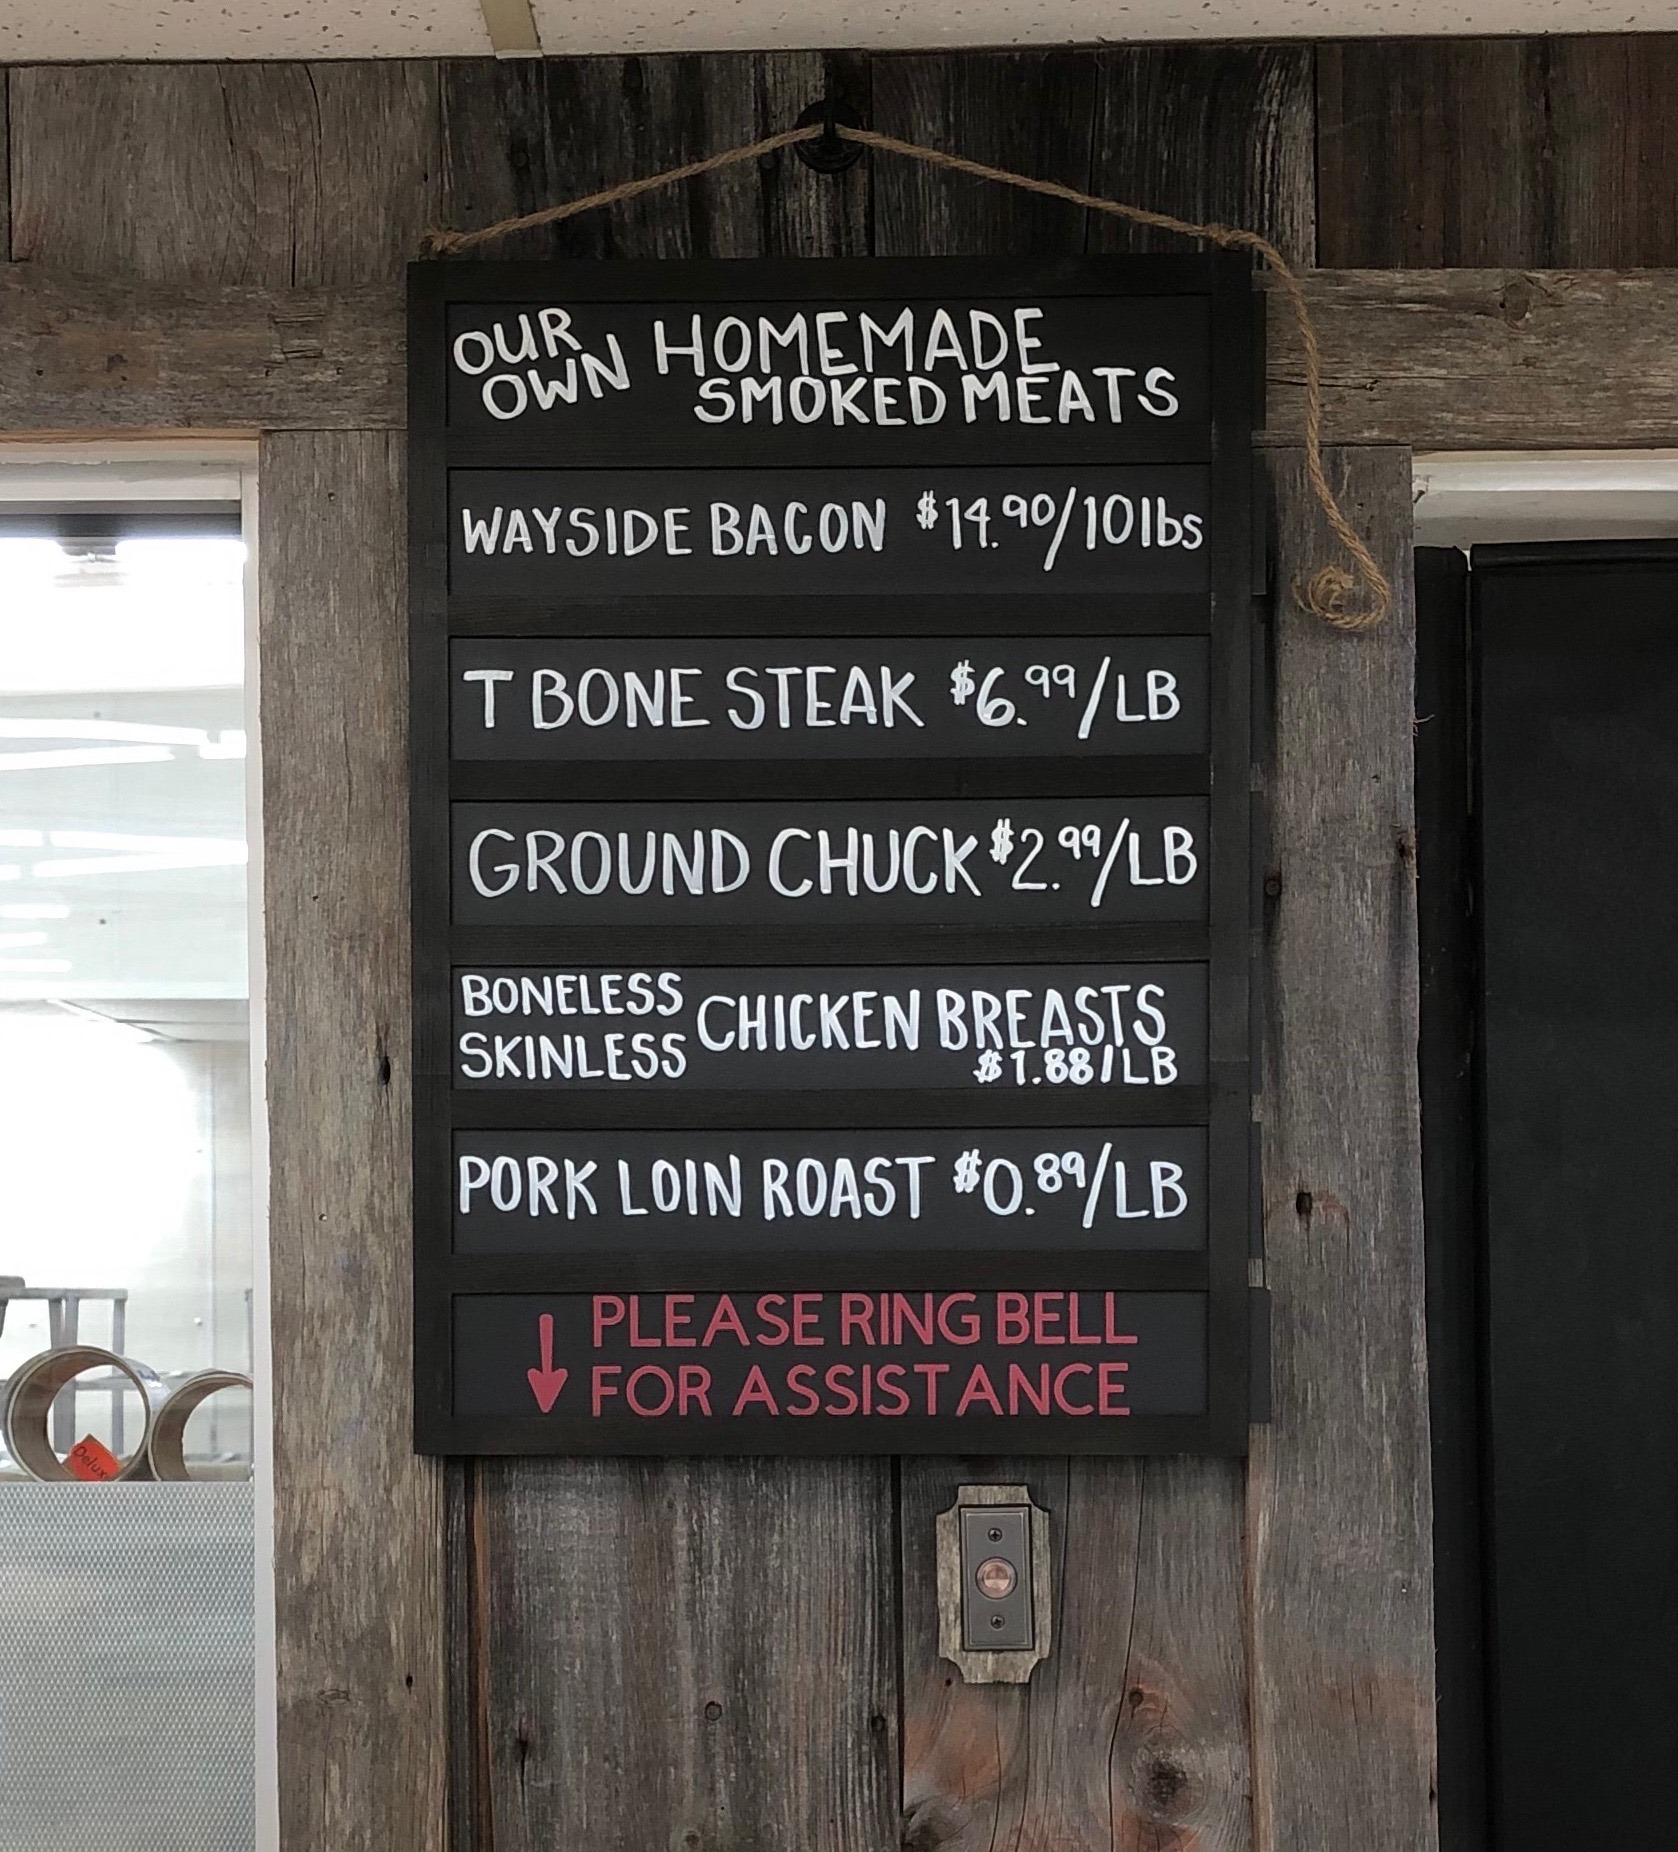 OUR OWN HOMEMADE
SMOKED MEATS
WAYSIDE BACON $14.90/10lbs
T BONE STEAK $6.99/LB
GROUND CHUCK $2.99/LB
BONELESS
SKINLESS CHICKEN BREASTS
$1.88/LB
PORK LOIN ROAST $0.89/LB
↓ PLEASE RING BELL
FOR ASSISTANCE
Delux